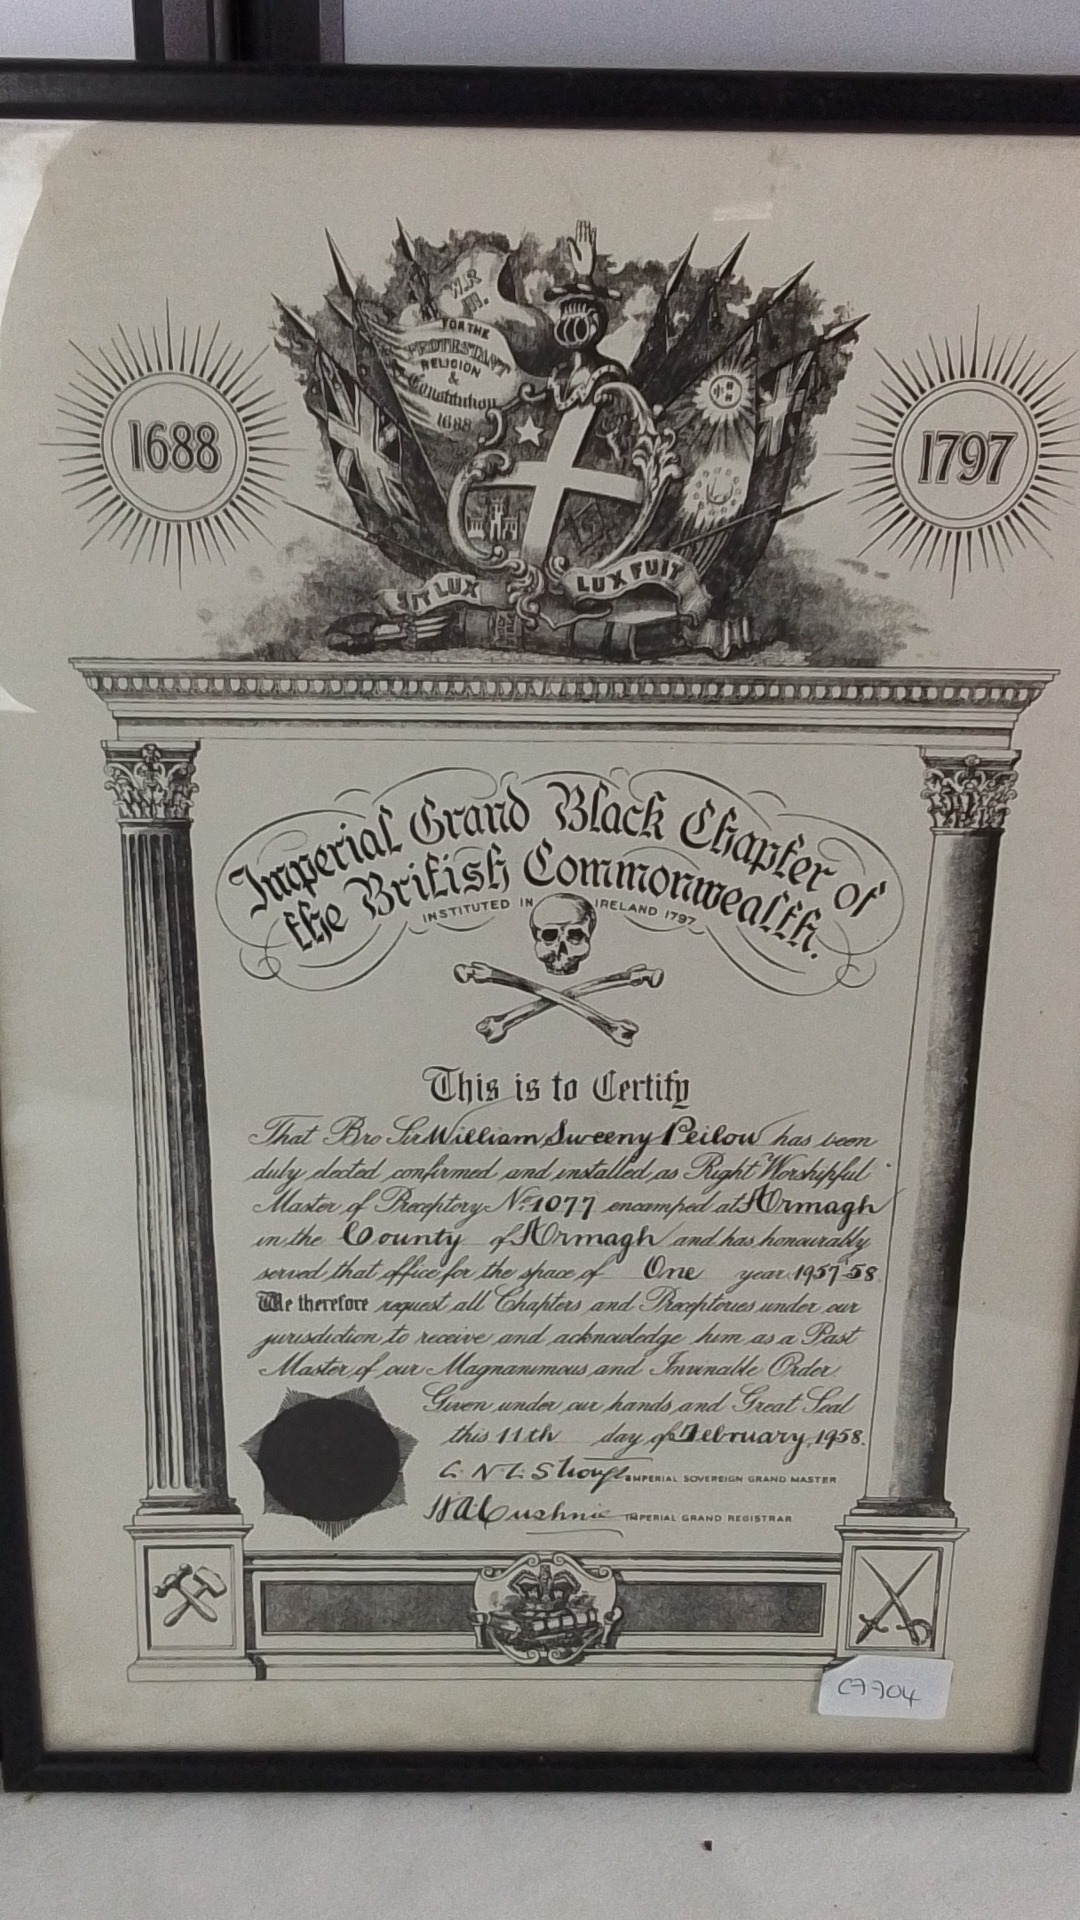 W.R
III.
FOR THE
PROTESTANT
RELIGION
&
Constitution
1688
1688
1797
SIT LUX
LUX FUIT
Imperial Grand Black Chapter of
the British Commonwealth.
INSTITUTED IN IRELAND 1797
This is to Certify
That Bro Sir William Sweeny Peilow has been
duly elected confirmed and installed as Right Worshipful
Master of Preceptory No. 1077 encamped at Armagh
in the County of Armagh and has honourably
served that office for the space of One year 1957-58
We therefore request all Chapters and Preceptories under our
jurisdiction to receive and acknowledge him as a Past
Master of our Magnanimous and Invincible Order.
Given under our hands and Great Seal
this 11th day of February, 1958.
IMPERIAL SOVEREIGN GRAND MASTER
IMPERIAL GRAND REGISTRAR
C7704